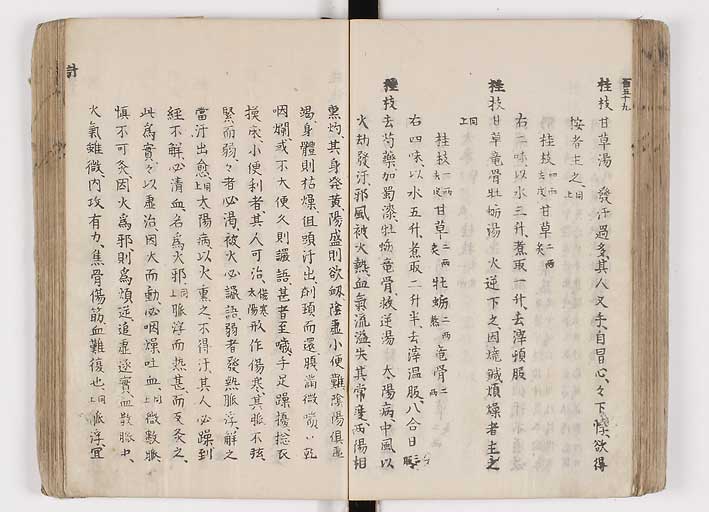 百五十九
桂枝甘草湯　發汗過多其人叉手自冒心々下悸欲得
按者主之上同
桂枝四两去皮甘草二两炙
右二味以水三升煮取一升去滓頓服
桂枝甘草竜骨牡蛎湯　火逆下之因燒鍼煩燥者主之
上同
桂枝一两去皮甘草二两炙牡蛎二两熬竜骨二两
右四味以水五升煮取二升半去滓温服八合日三服
桂枝去芍藥加蜀漆牡蛎竜骨救逆湯　太陽病中風以
火劫發汗邪風被火熱血氣流溢失其常度两陽相
熏灼其身発黄陽盛則欲衂陰虚小便難陰陽俱虚
竭身體則枯燥但頭汗出劑頚而還腹満微喘口乾
咽爛或不大便久則讝語甚者至噦手足躁擾捻衣
摸床小便利者其人可治傷寒太陽形作傷寒其脈不弦
緊而弱々者必渇被火必讝語弱者發熱脈浮解之
當汗出愈上同太陽病以火熏之不得汗其人必躁到
經不解必清血名為火邪上同脈浮而熱甚而反灸之
此為實々以虚治因火而動必咽燥吐血上同微數脈
慎不可灸因火為邪則為煩逆追虚逐實血散脈中
火氣雖微内攻有力焦骨傷筋血難復也上同脈浮宜